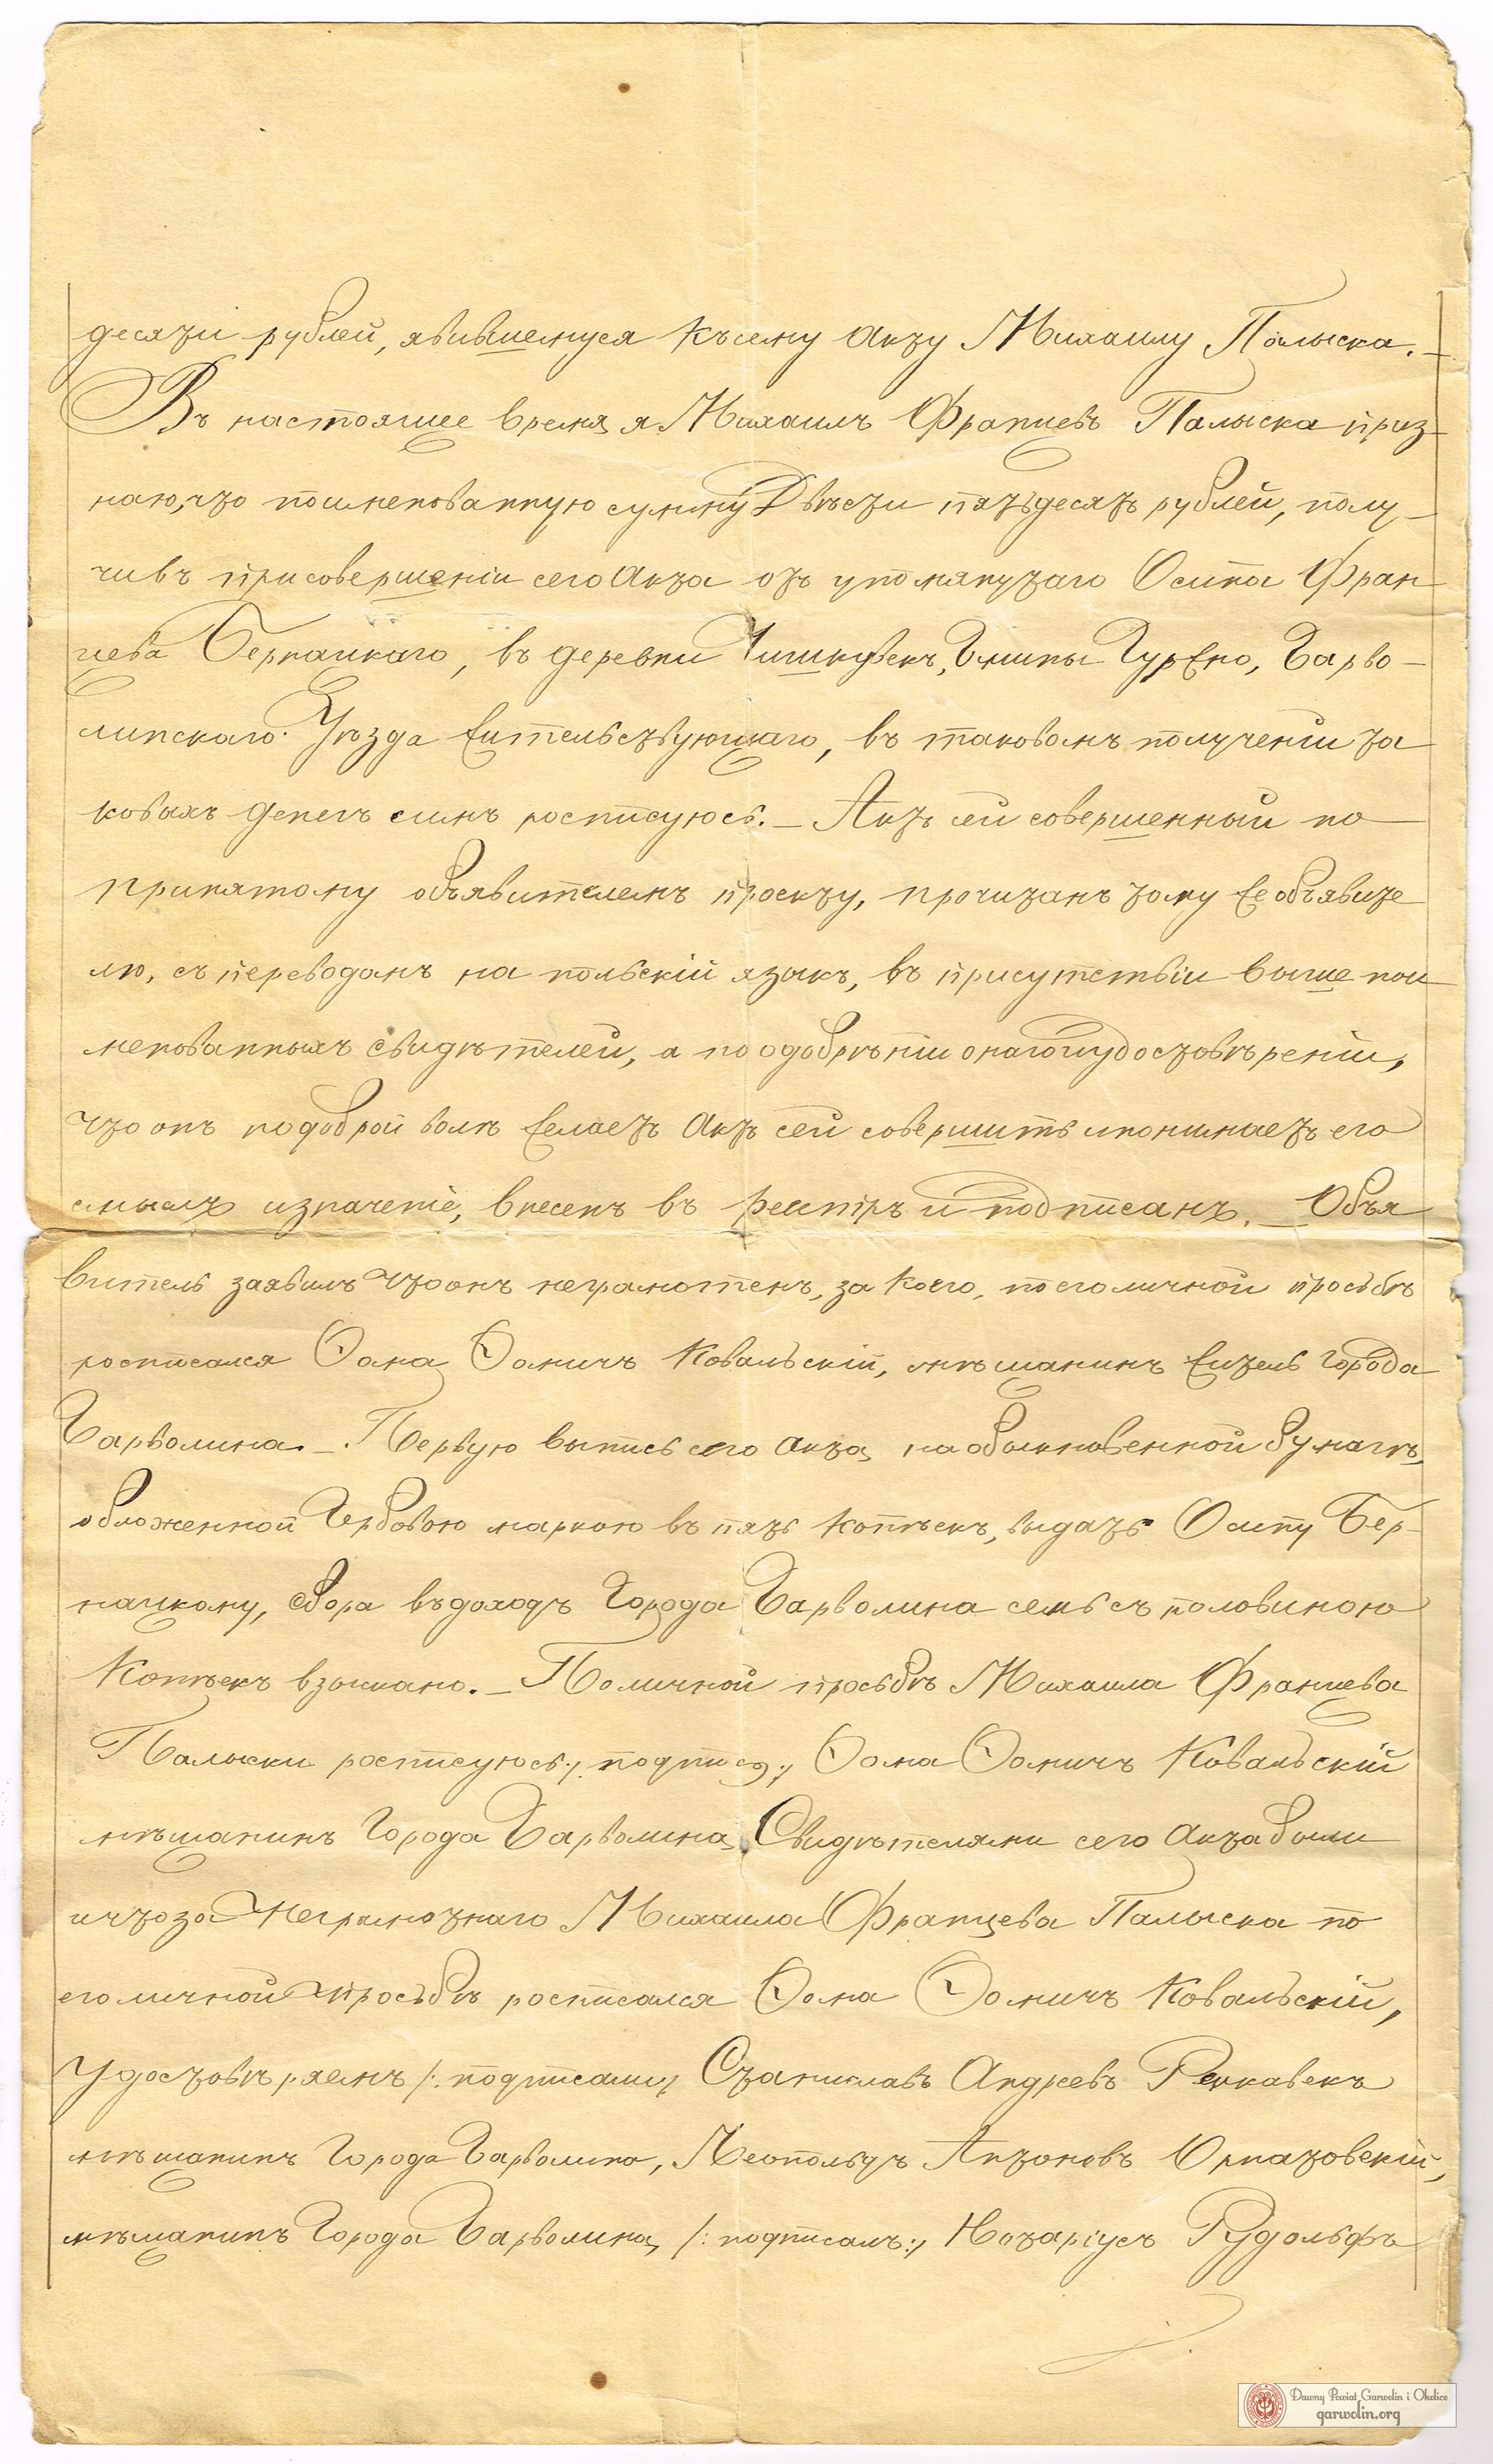 десяти рублей, явившемуся къ сему акту Михаилу Палыска. —
Въ настоящее время я Михаилъ Францевъ Палыска приз-
наю, что поименованную сумму Двѣсти пятьдесятъ рублей, полу-
чивъ при совершеніи сего акта отъ упомянутаго Осипа Фран-
цева Бернацкаго, въ деревни Гмины Гуржно, Гарво-
линскаго Уѣзда жительствующаго, въ таковомъ полученіи та
ковыхъ денегъ симъ росписуюсь. — Актъ сей совершенный по
принятому объявителемъ проекту, прочитанъ тому же объявите
лю, съ переводомъ на польскій языкъ, въ присутствіи выше пои
менованныхъ свидѣтелей, а по одобрѣніи онаго и удостовѣреніи,
что онъ по доброй волѣ желаетъ актъ сей совершить и понимаетъ его
смыслъ и значеніе, внесенъ въ реестръ и подписанъ. — Объя
витель заявилъ что онъ неграмотенъ, за коего, по его личной просьбѣ
росписался Ѳома Ѳомичъ Ковальскій, мѣщанинъ житель города
Гарволина. — Первую выпись сего акта, на обыкновенной бумагѣ,
обложенной Гербовою маркою въ пять копѣекъ, выдать Осипу Бер-
нацкому, сбора въ доходъ Города Гарволина семь съ половиною
копѣекъ взыскано. — По личной просьбѣ Михаила Францева
Палыски росписуюсь /: подпись :/ Ѳома Ѳомичъ Ковальскій
мѣщанинъ Города Гарволина, Свидѣтелями сего акта были
и что за неграмотнаго Михаила Францева Палыска по
его личной просьбѣ росписался Ѳома Ѳомичъ Ковальскій,
удостовѣряемъ /: подписали :/ Станиславъ Андреевъ Рențавекъ
мѣщанинъ Города Гарволина, Леопольдъ Антоновъ Орнатовскій,
мѣщанинъ Города Гарволина, /: подписалъ :/ Нотаріусъ Рудольфъ
Dawny Powiat Garwolin i Okolice
garwolin.org